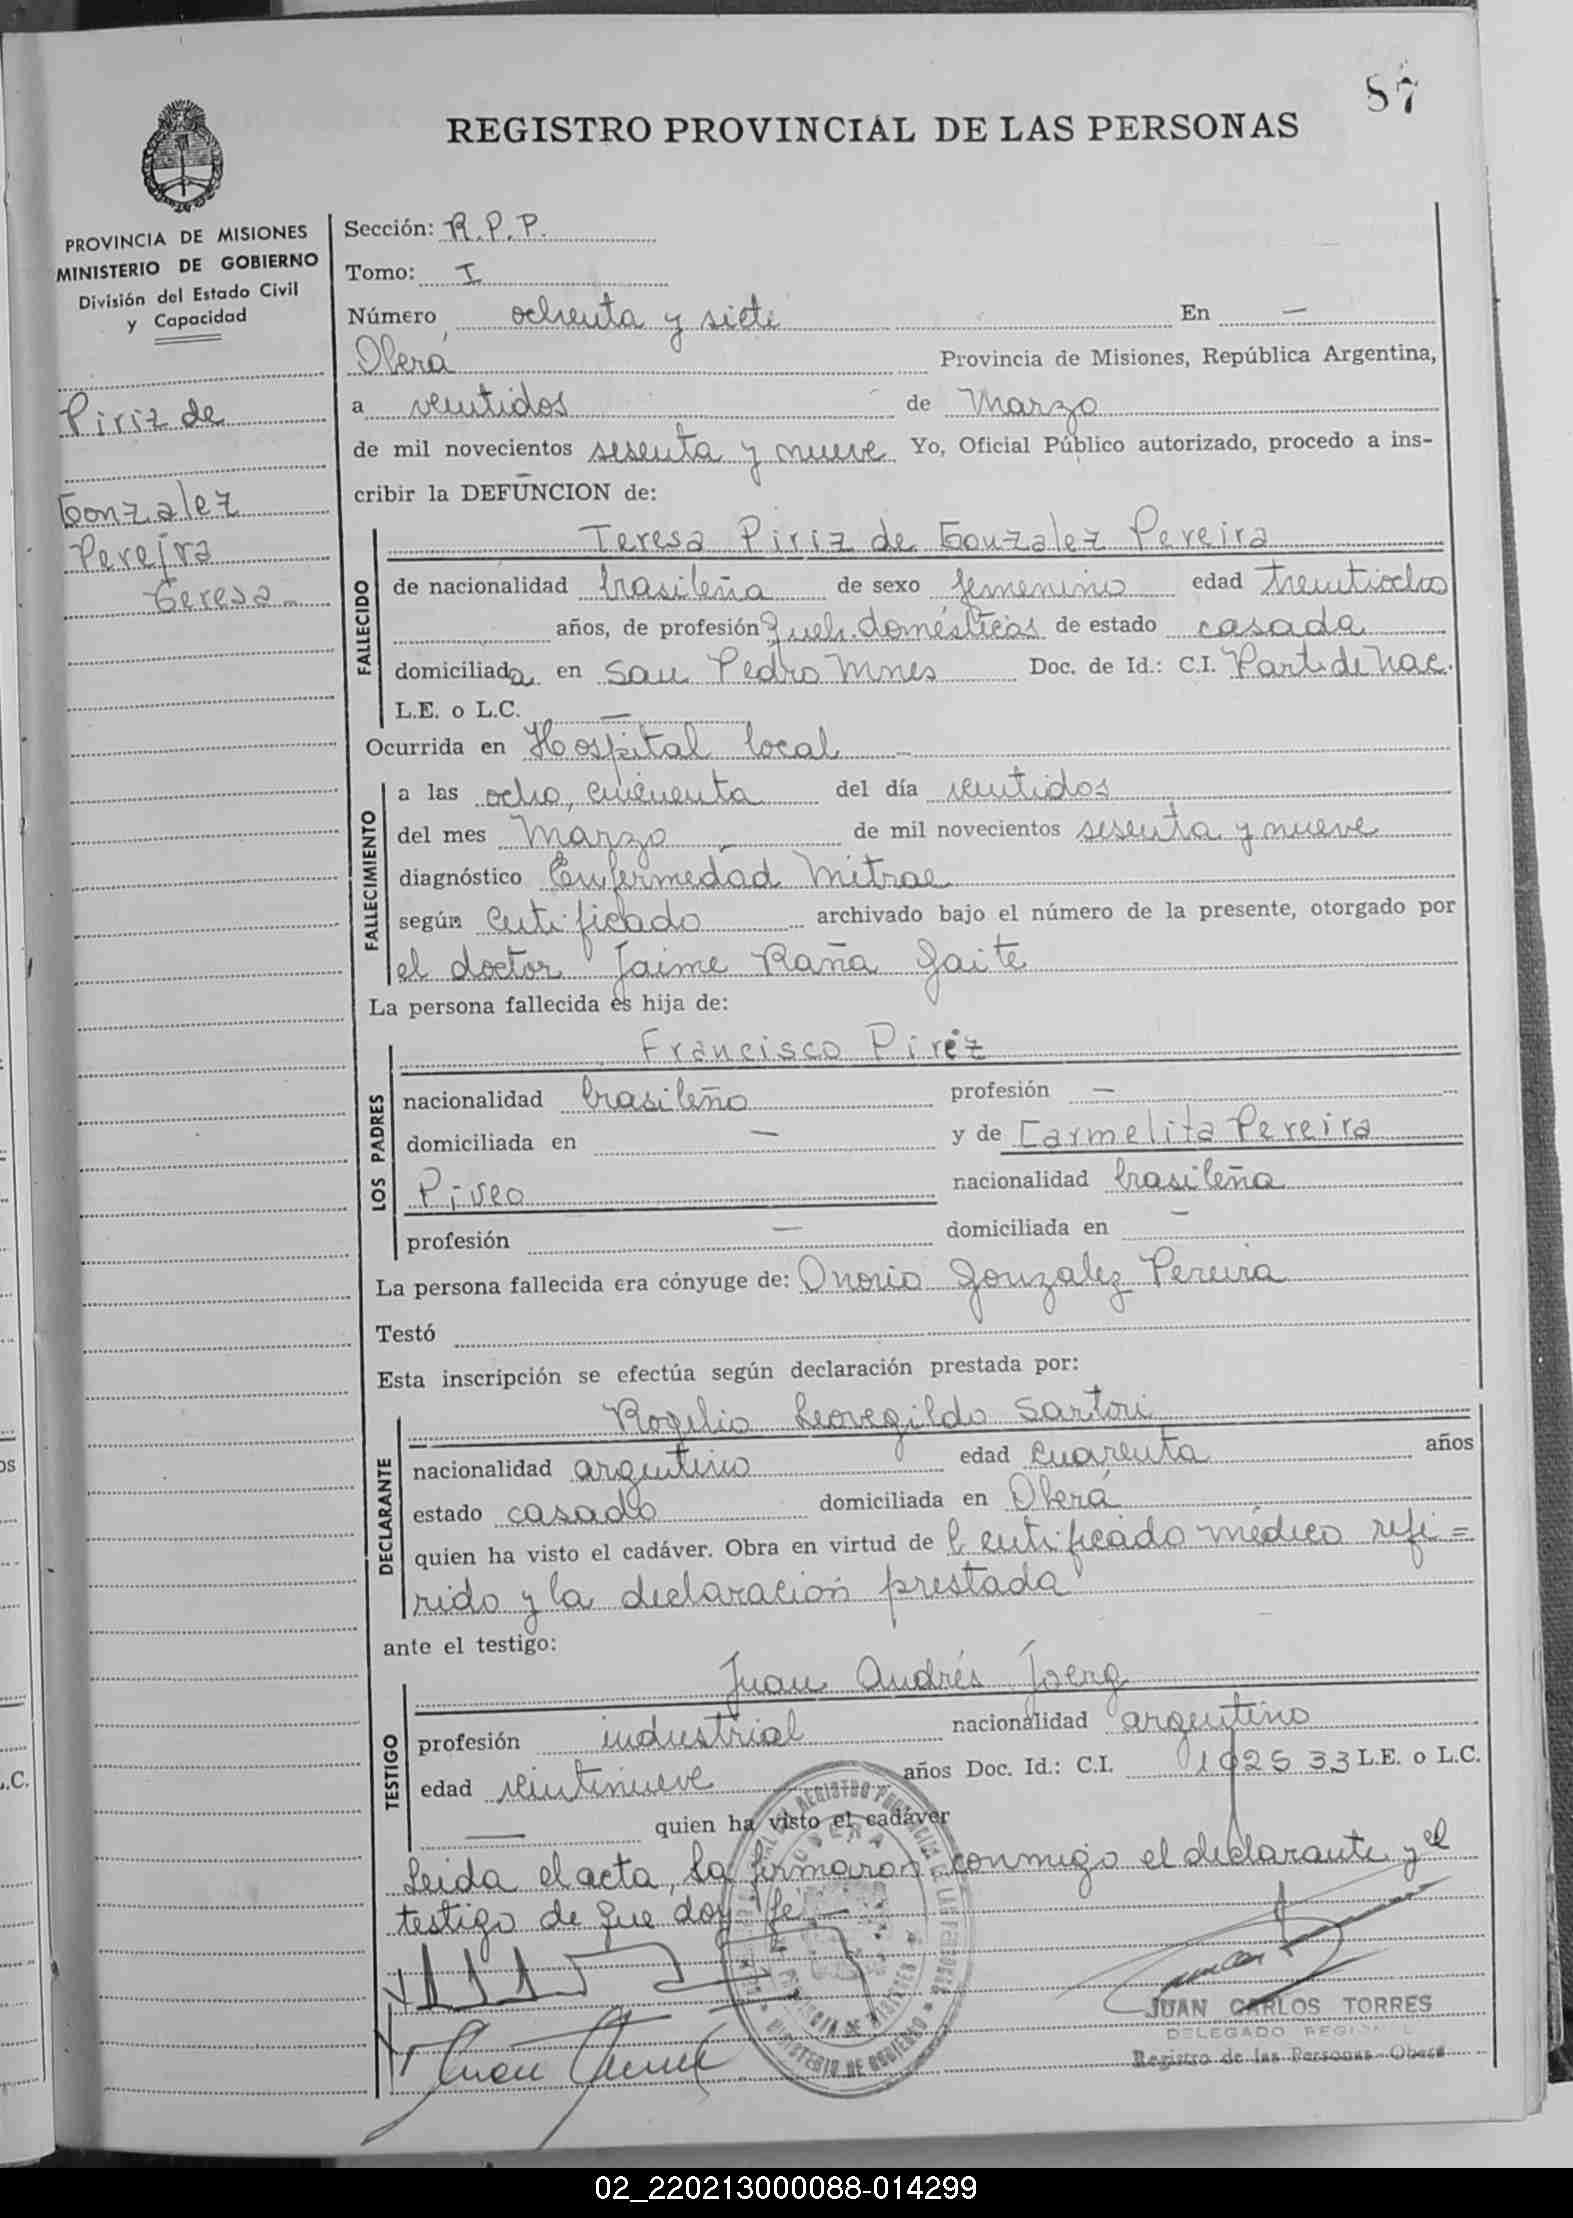 87
REGISTRO PROVINCIAL DE LAS PERSONAS
PROVINCIA DE MISIONES
MINISTERIO DE GOBIERNO
División del Estado Civil
y Capacidad
Piriz de
Gonzalez
Pereira
Teresa
Sección: R.P.P.
Tomo: I
Número ochenta y siete En —
Oberá Provincia de Misiones, República Argentina,
a veintidos de Marzo
de mil novecientos sesenta y nueve Yo, Oficial Público autorizado, procedo a ins-
cribir la DEFUNCION de:
Teresa Piriz de Gonzalez Pereira
FALLECIDO
de nacionalidad brasileña de sexo femenino edad treintiocho
años, de profesión Queh. domésticos de estado casada
domiciliada en San Pedro Mnes Doc. de Id.: C.I. Part. de Nac.
L.E. o L.C. —
Ocurrida en Hospital local —
FALLECIMIENTO
a las ocho, cincuenta del día veintidos
del mes Marzo de mil novecientos sesenta y nueve
diagnóstico Enfermedad Mitral
según certificado archivado bajo el número de la presente, otorgado por
el doctor Jaime Raña Gaite
La persona fallecida es hija de:
LOS PADRES
Francisco Piréz
nacionalidad brasileño profesión —
domiciliada en — y de Carmelita Pereira
nacionalidad brasileña
profesión — domiciliada en —
La persona fallecida era cónyuge de: Onorio Gonzalez Pereira
Testó
Esta inscripción se efectúa según declaración prestada por:
DECLARANTE
Rogelio Leovegildo Sartori
nacionalidad argentino edad cuarenta años
estado casado domiciliada en Oberá
quien ha visto el cadáver. Obra en virtud de l certificado médico refe=
rido y la declaración prestada
ante el testigo:
TESTIGO
Juan Andrés Joerg
profesión industrial nacionalidad argentino
edad veintinueve años Doc. Id.: C.I. 102533 L.E. o L.C.
— quien ha visto el cadáver
Leida el acta, la firmaron conmigo el declarante y el
testigo de que doy fe. —
OBERA
PROVINCIA DE MISIONES
MINISTERIO DE GOBIERNO
JUAN CARLOS TORRES
DELEGADO REGIONAL
Registro de las Personas - Oberá
02_220213000088-014299